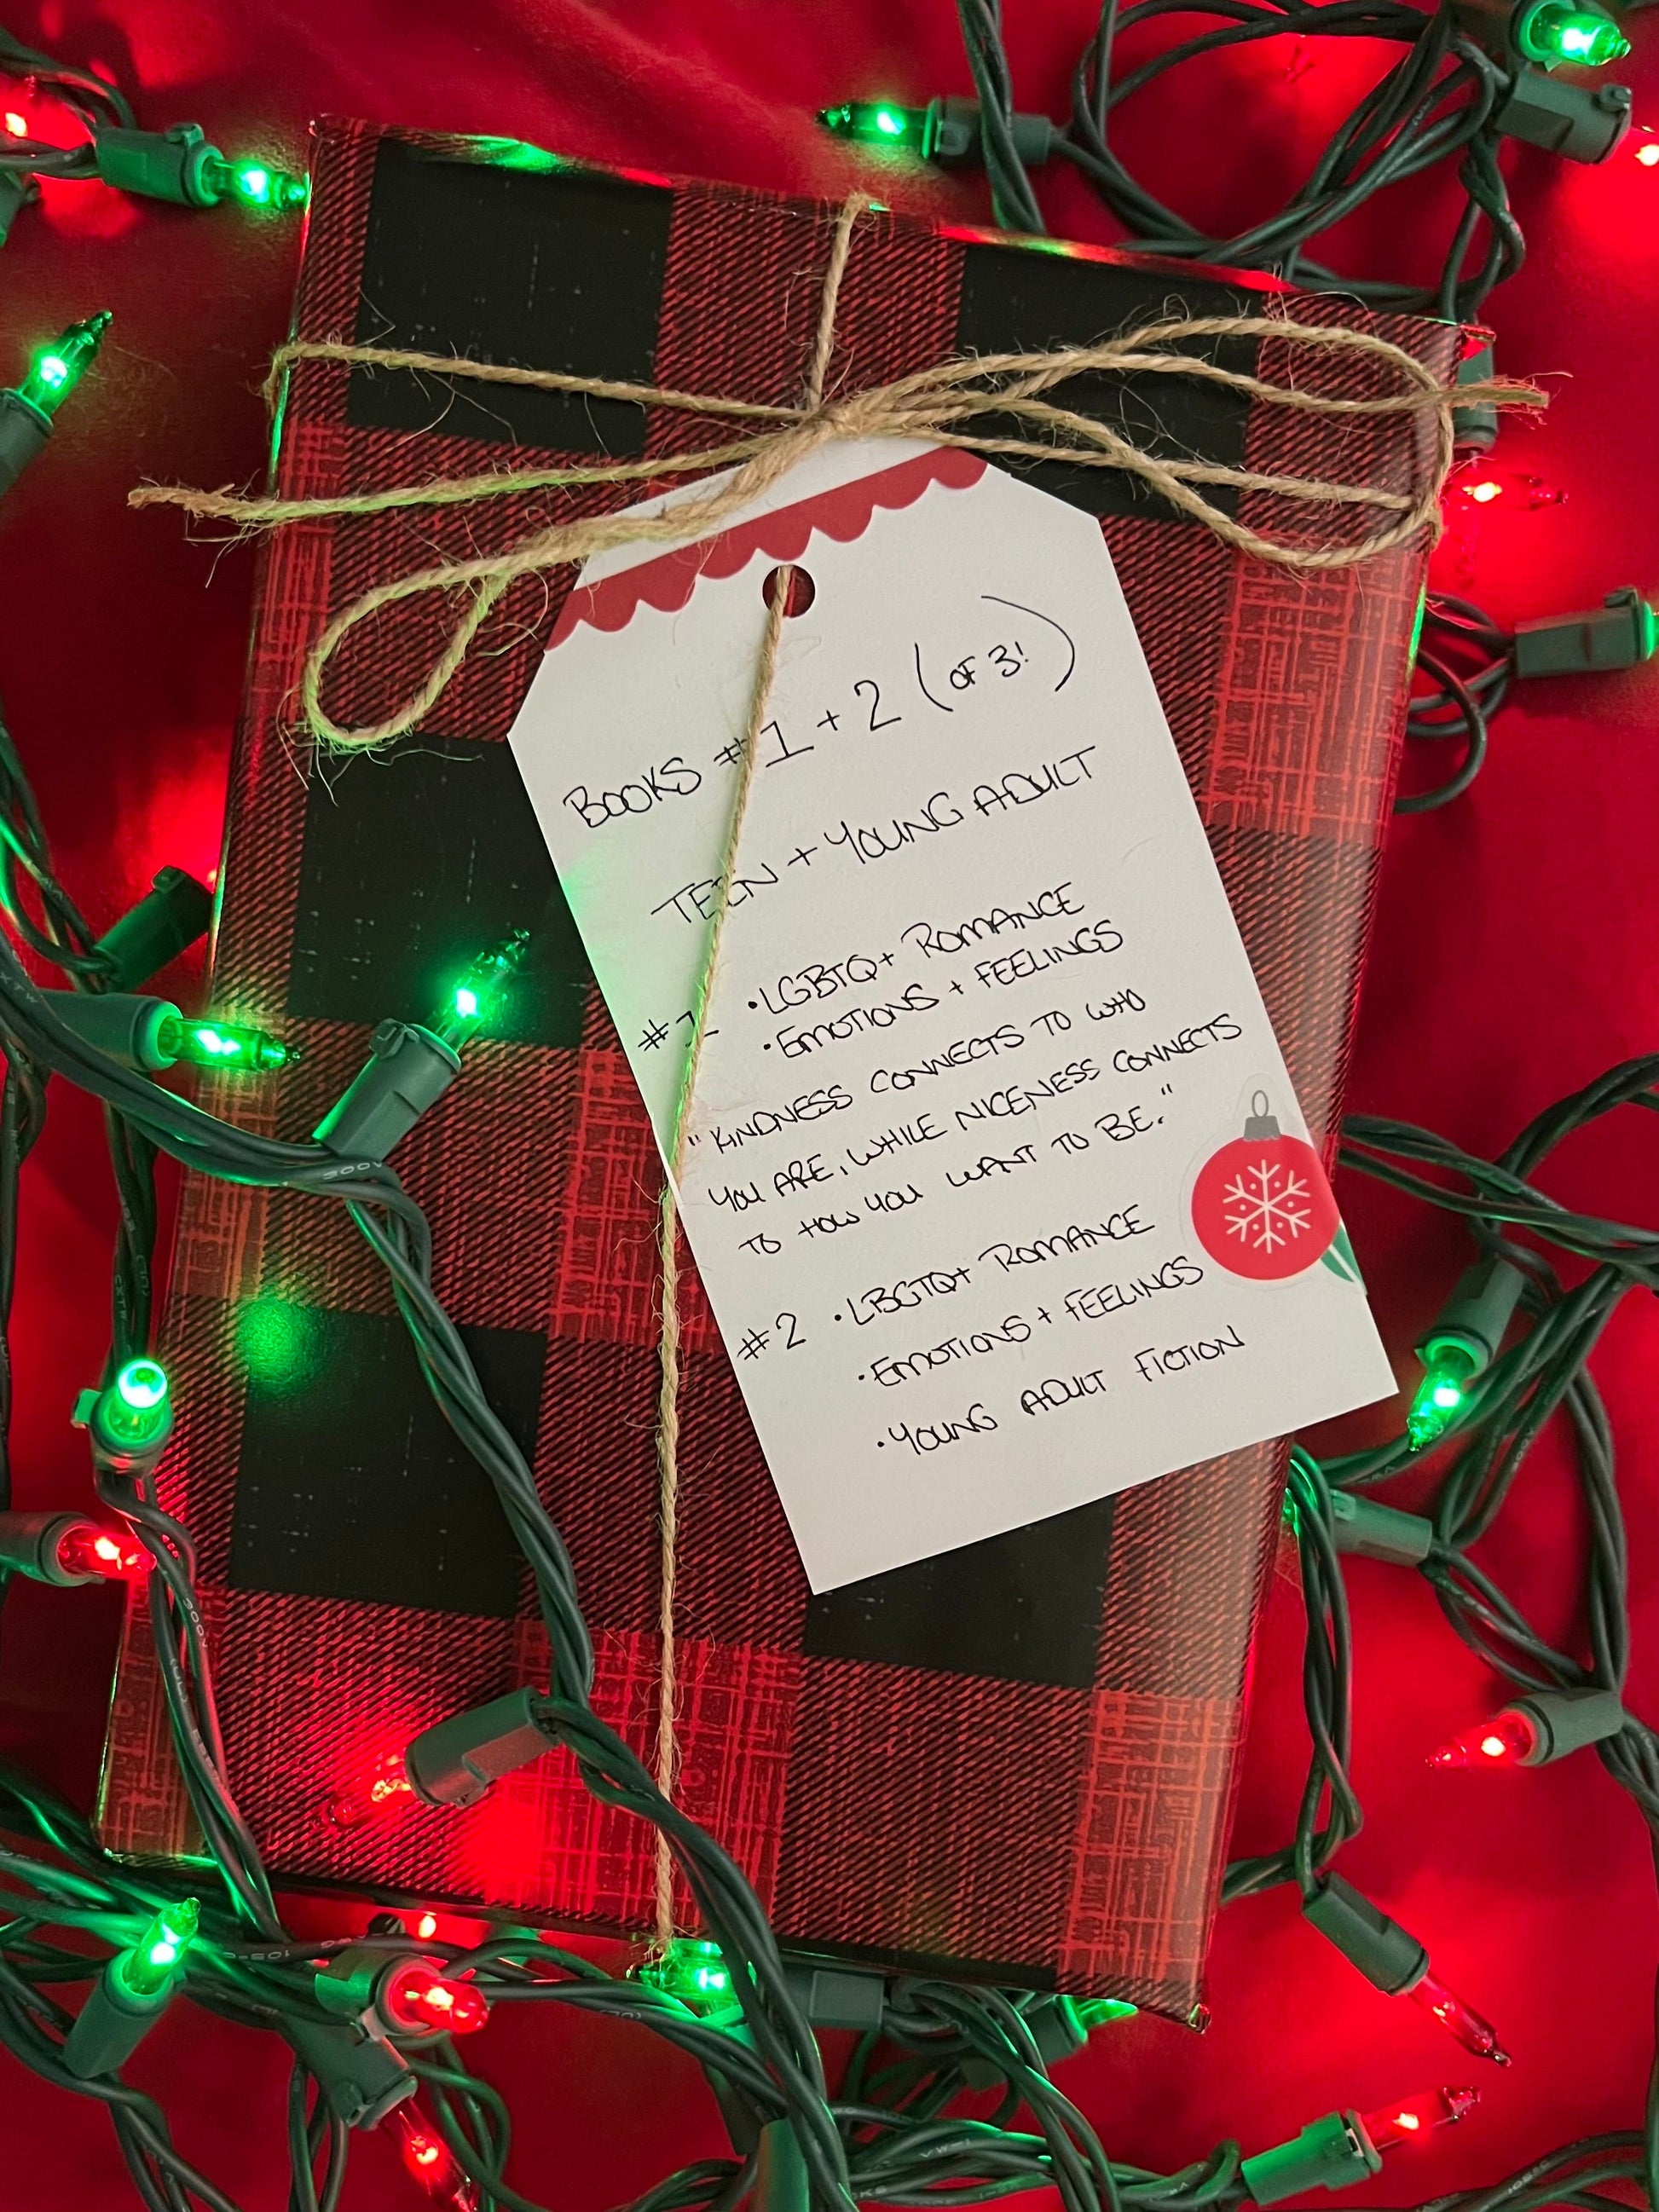 BOOKS #1 + 2 (OF 3!)
TEEN + YOUNG ADULT
#1 • LGBTQ+ ROMANCE
• EMOTIONS + FEELINGS
"KINDNESS CONNECTS TO WHO
YOU ARE, WHILE NICENESS CONNECTS
TO HOW YOU WANT TO BE."
#2 • LBGTQ+ ROMANCE
• EMOTIONS + FEELINGS
• YOUNG ADULT FICTION